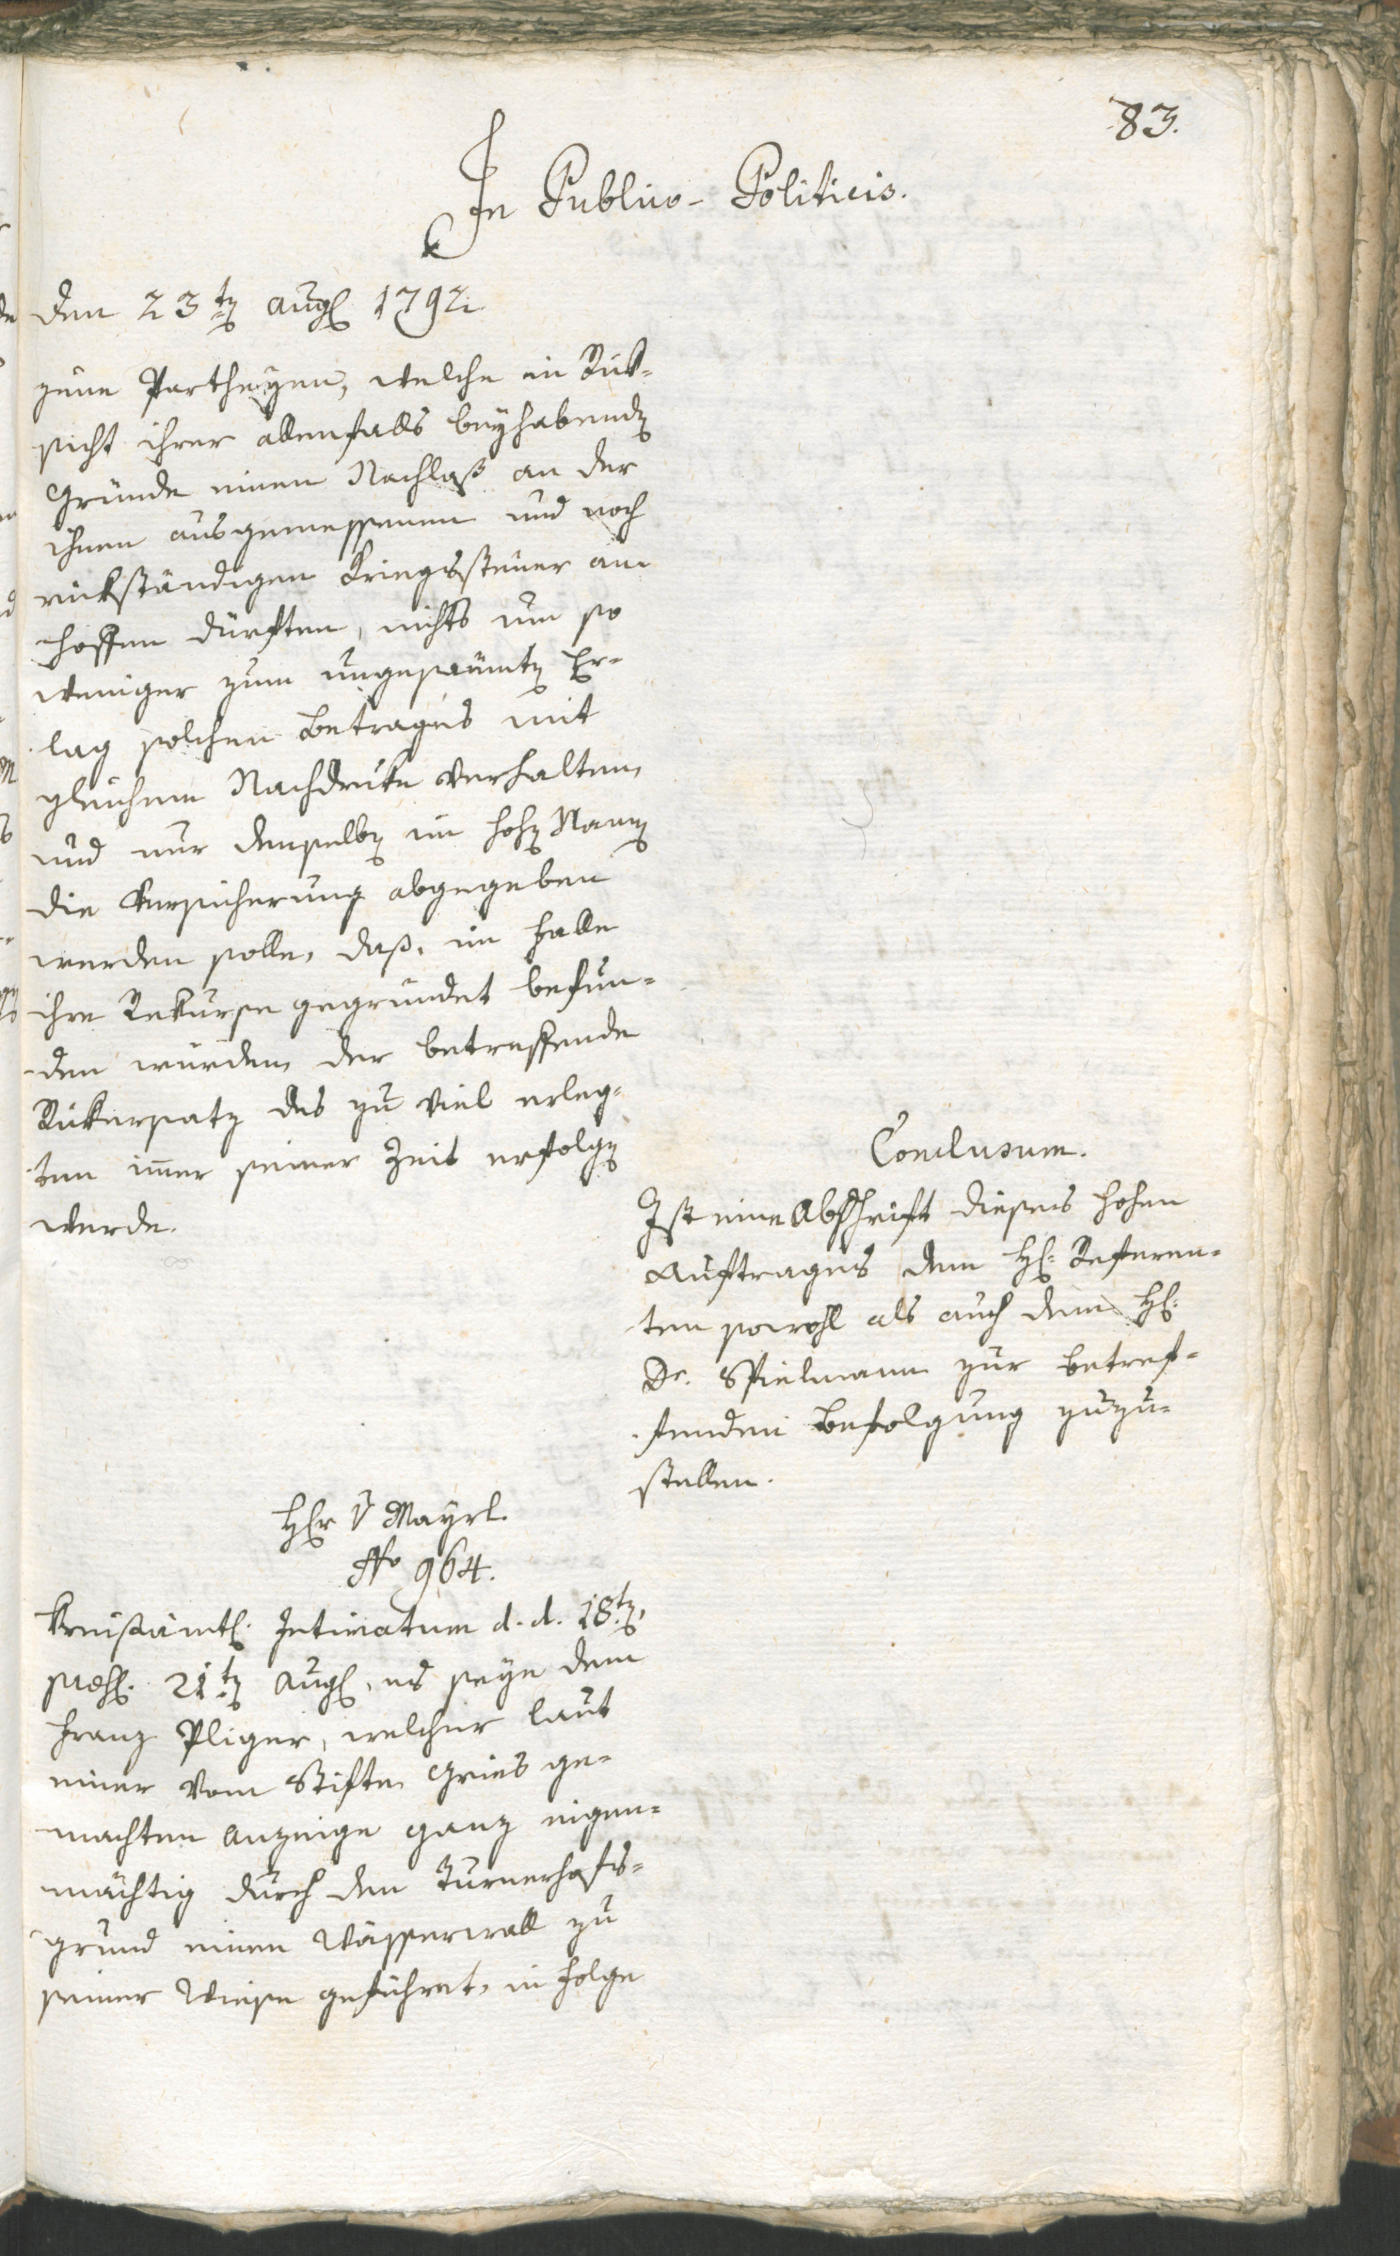 83.
In Publico-Politicis.
den 23tn Augl 1792
jene Partheyen, welche in Rük-
sicht ihrer allenfalls beyhabendn
Gründe einen Nachlaß an der
ihnen ausgemessenen und noch
rückständigen Kriegssteuer an-
hoffen dürften, nichts um so
weniger zum ungesäumtn Er-
lag solchen Betrages mit
gleichem Nachdruke verhalten,
und nur denselbn im hohn Namn
die Versicherung abgegeben
werden solle, daß, im Falle
ihre Rekurse gegründet befun-
den würden, der betreffende
Rükersatz des zu viel erleg-
ten imer seiner Zeit erfolgn
werde.
Conclusum.
Ist eine Abschrift dieses hohen
Auftrages dem H: Referen-
ten sowohl als auch dem H:
Dr. Spielmann zur betref-
fenden Befolgung zuzu-
stellen.
Hr v Mayrl.
No 964.
Kreisämtl. Intimatum d. d. 18tn,
praes. 21tn Augl, es seye dem
Franz Pliger, welcher laut
einer vom Stifte Gries ge-
machten Anzeige ganz eigen-
mächtig durch den Turnerhofs-
grund einen Wasserwall zu
seiner Wiese geführet, in Folge